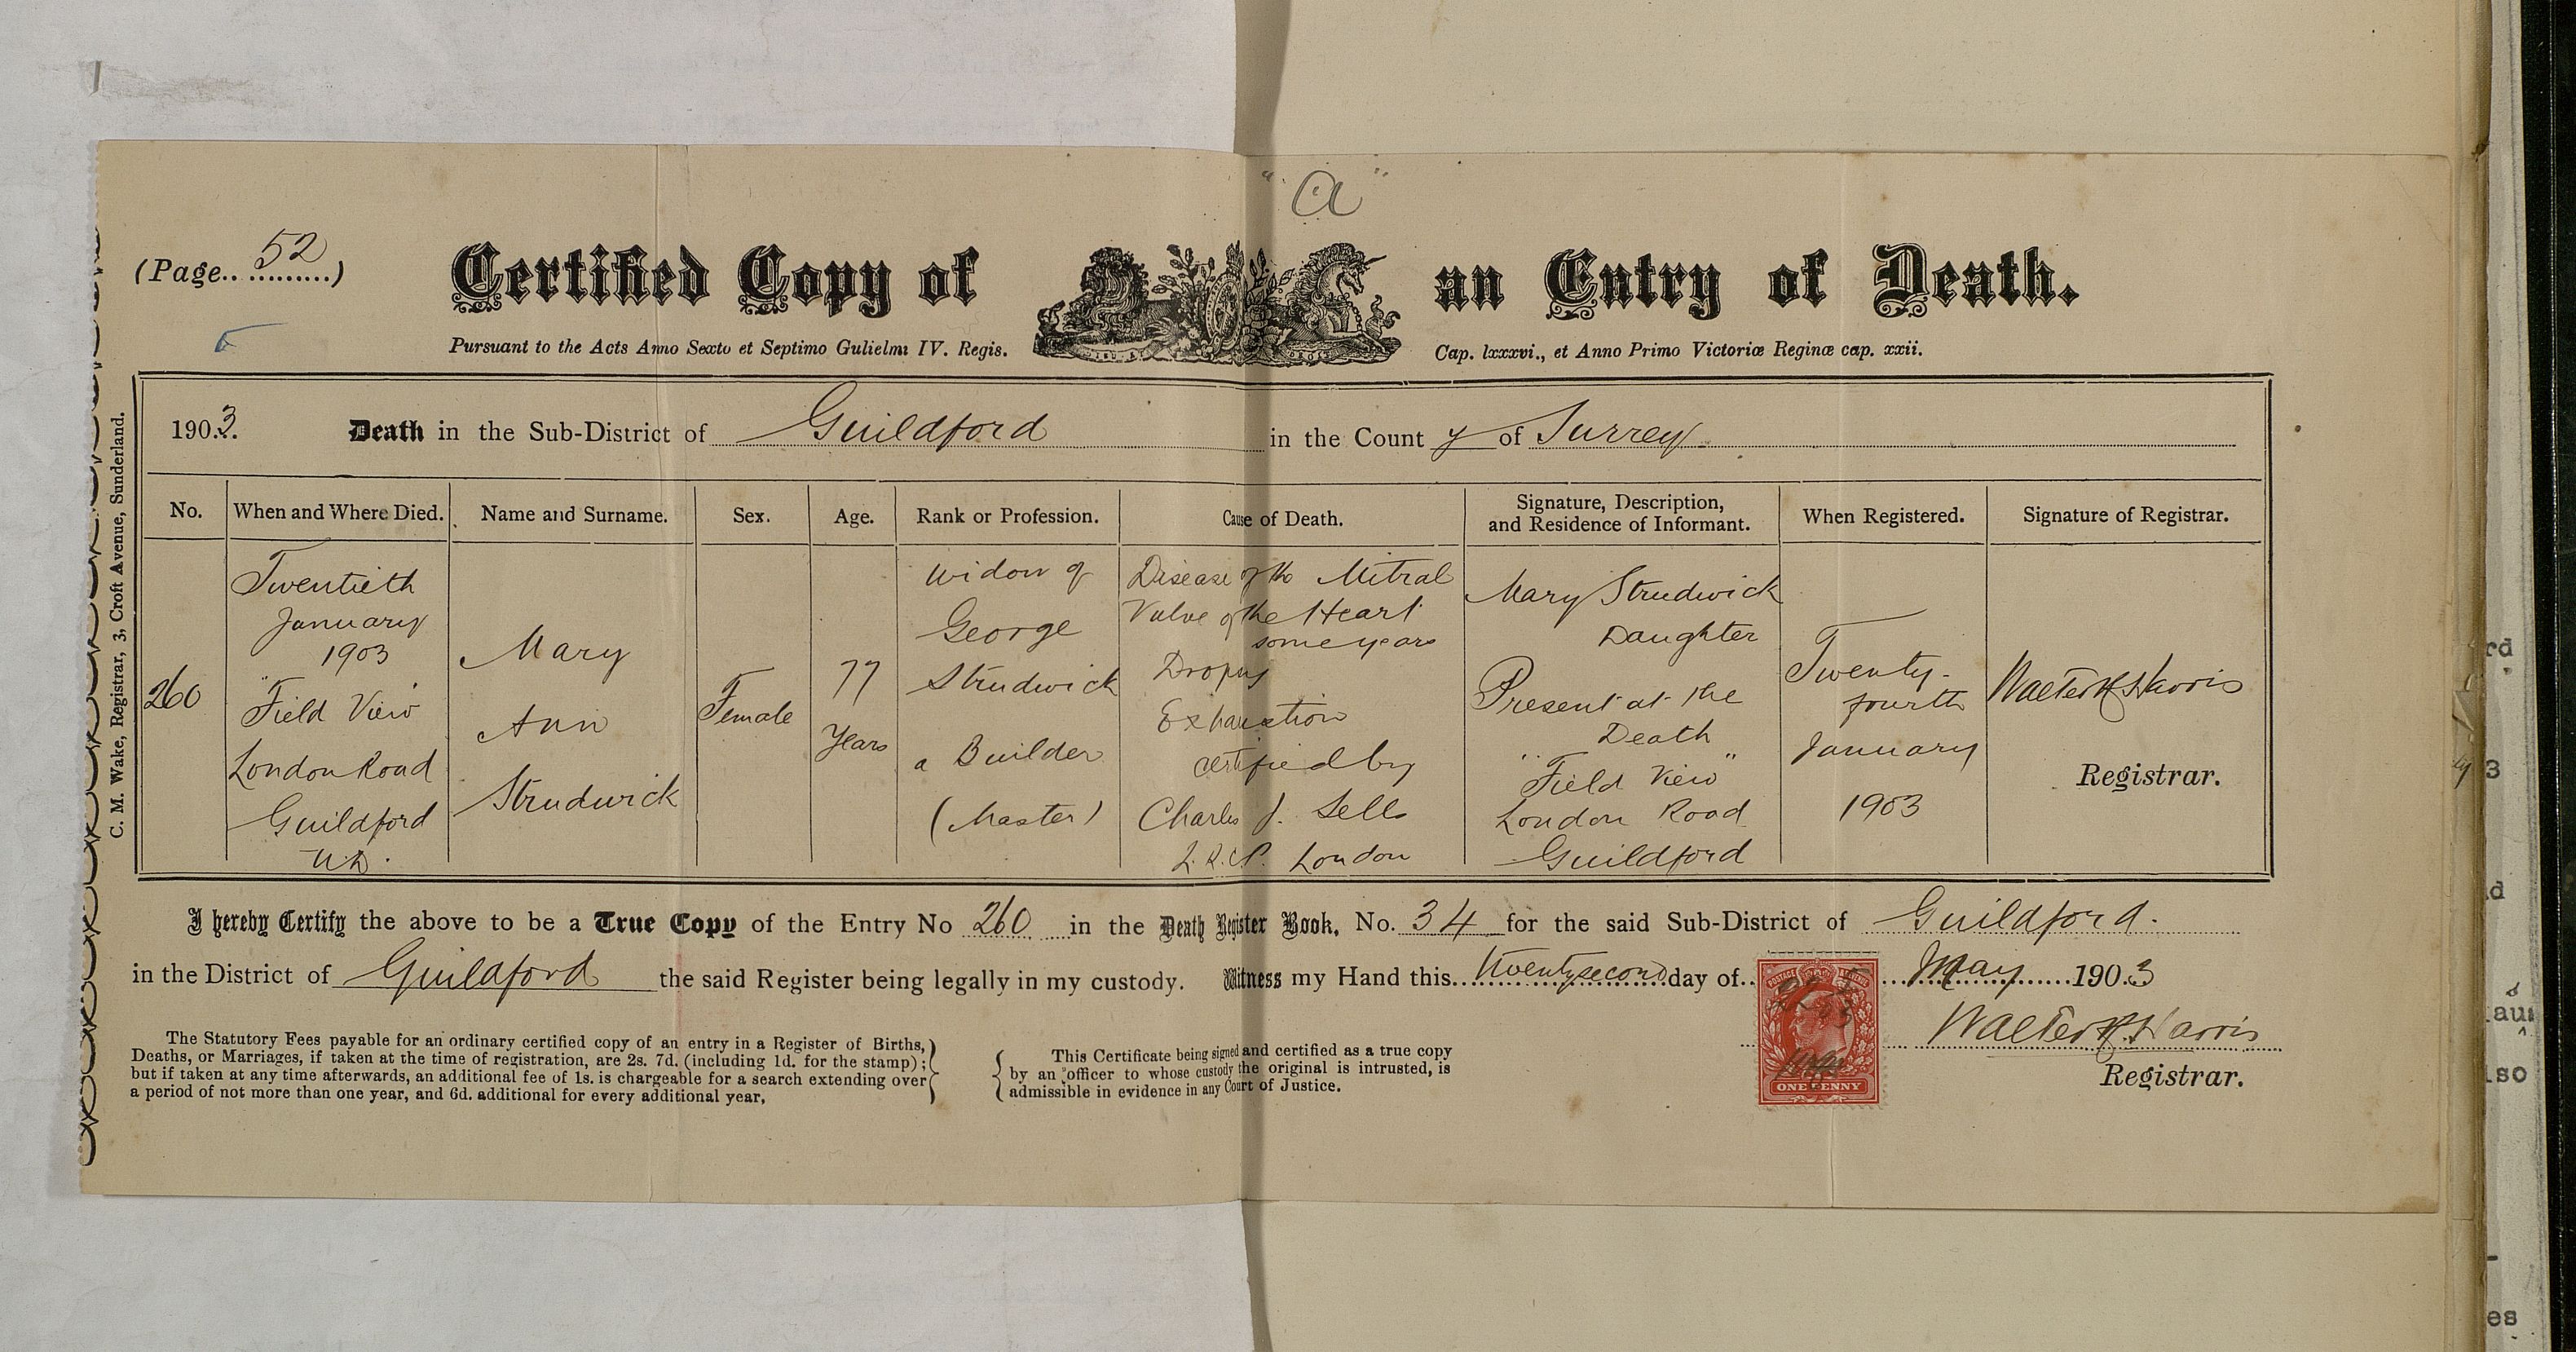 "a"
(Page 52)
Certified Copy of an Entry of Death.
Pursuant to the Acts Anno Sexto et Septimo Gulielmi IV. Regis. Cap. lxxxvi., et Anno Primo Victoriæ Reginæ cap. xxii.
C. M. Wake, Registrar, 3, Croft Avenue, Sunderland.
1903. Death in the Sub-District of Guildford in the County of Surrey
No.
When and Where Died.
Name and Surname.
Sex.
Age.
Rank or Profession.
Cause of Death.
Signature, Description,
and Residence of Informant.
When Registered.
Signature of Registrar.
260
Twentieth
January
1903
"Field View
London Road
Guildford
U.D.
Mary
Ann
Strudwick
Female
77
Years
Widow of
George
Strudwick
a Builder
(Master)
Disease of the Mitral
Valve of the Heart
some years
Dropsy
Exhaustion
Certified by
Charles J. Sells
L.R.C.P. London
Mary Strudwick
Daughter
Present at the
Death
"Field View"
London Road
Guildford
Twenty-
fourth
January
1903
Walter H. Harris
Registrar.
I hereby Certify the above to be a True Copy of the Entry No 260 in the Death Register Book, No. 34 for the said Sub-District of Guildford.
in the District of Guildford the said Register being legally in my custody. Witness my Hand this Twenty second day of May 1903
Walter H. Harris
Registrar.
The Statutory Fees payable for an ordinary certified copy of an entry in a Register of Births,
Deaths, or Marriages, if taken at the time of registration, are 2s. 7d. (including 1d. for the stamp);
but if taken at any time afterwards, an additional fee of 1s. is chargeable for a search extending over
a period of not more than one year, and 6d. additional for every additional year,
This Certificate being signed and certified as a true copy
by an officer to whose custody the original is intrusted, is
admissible in evidence in any Court of Justice.
POSTAGE & REVENUE
ONE PENNY